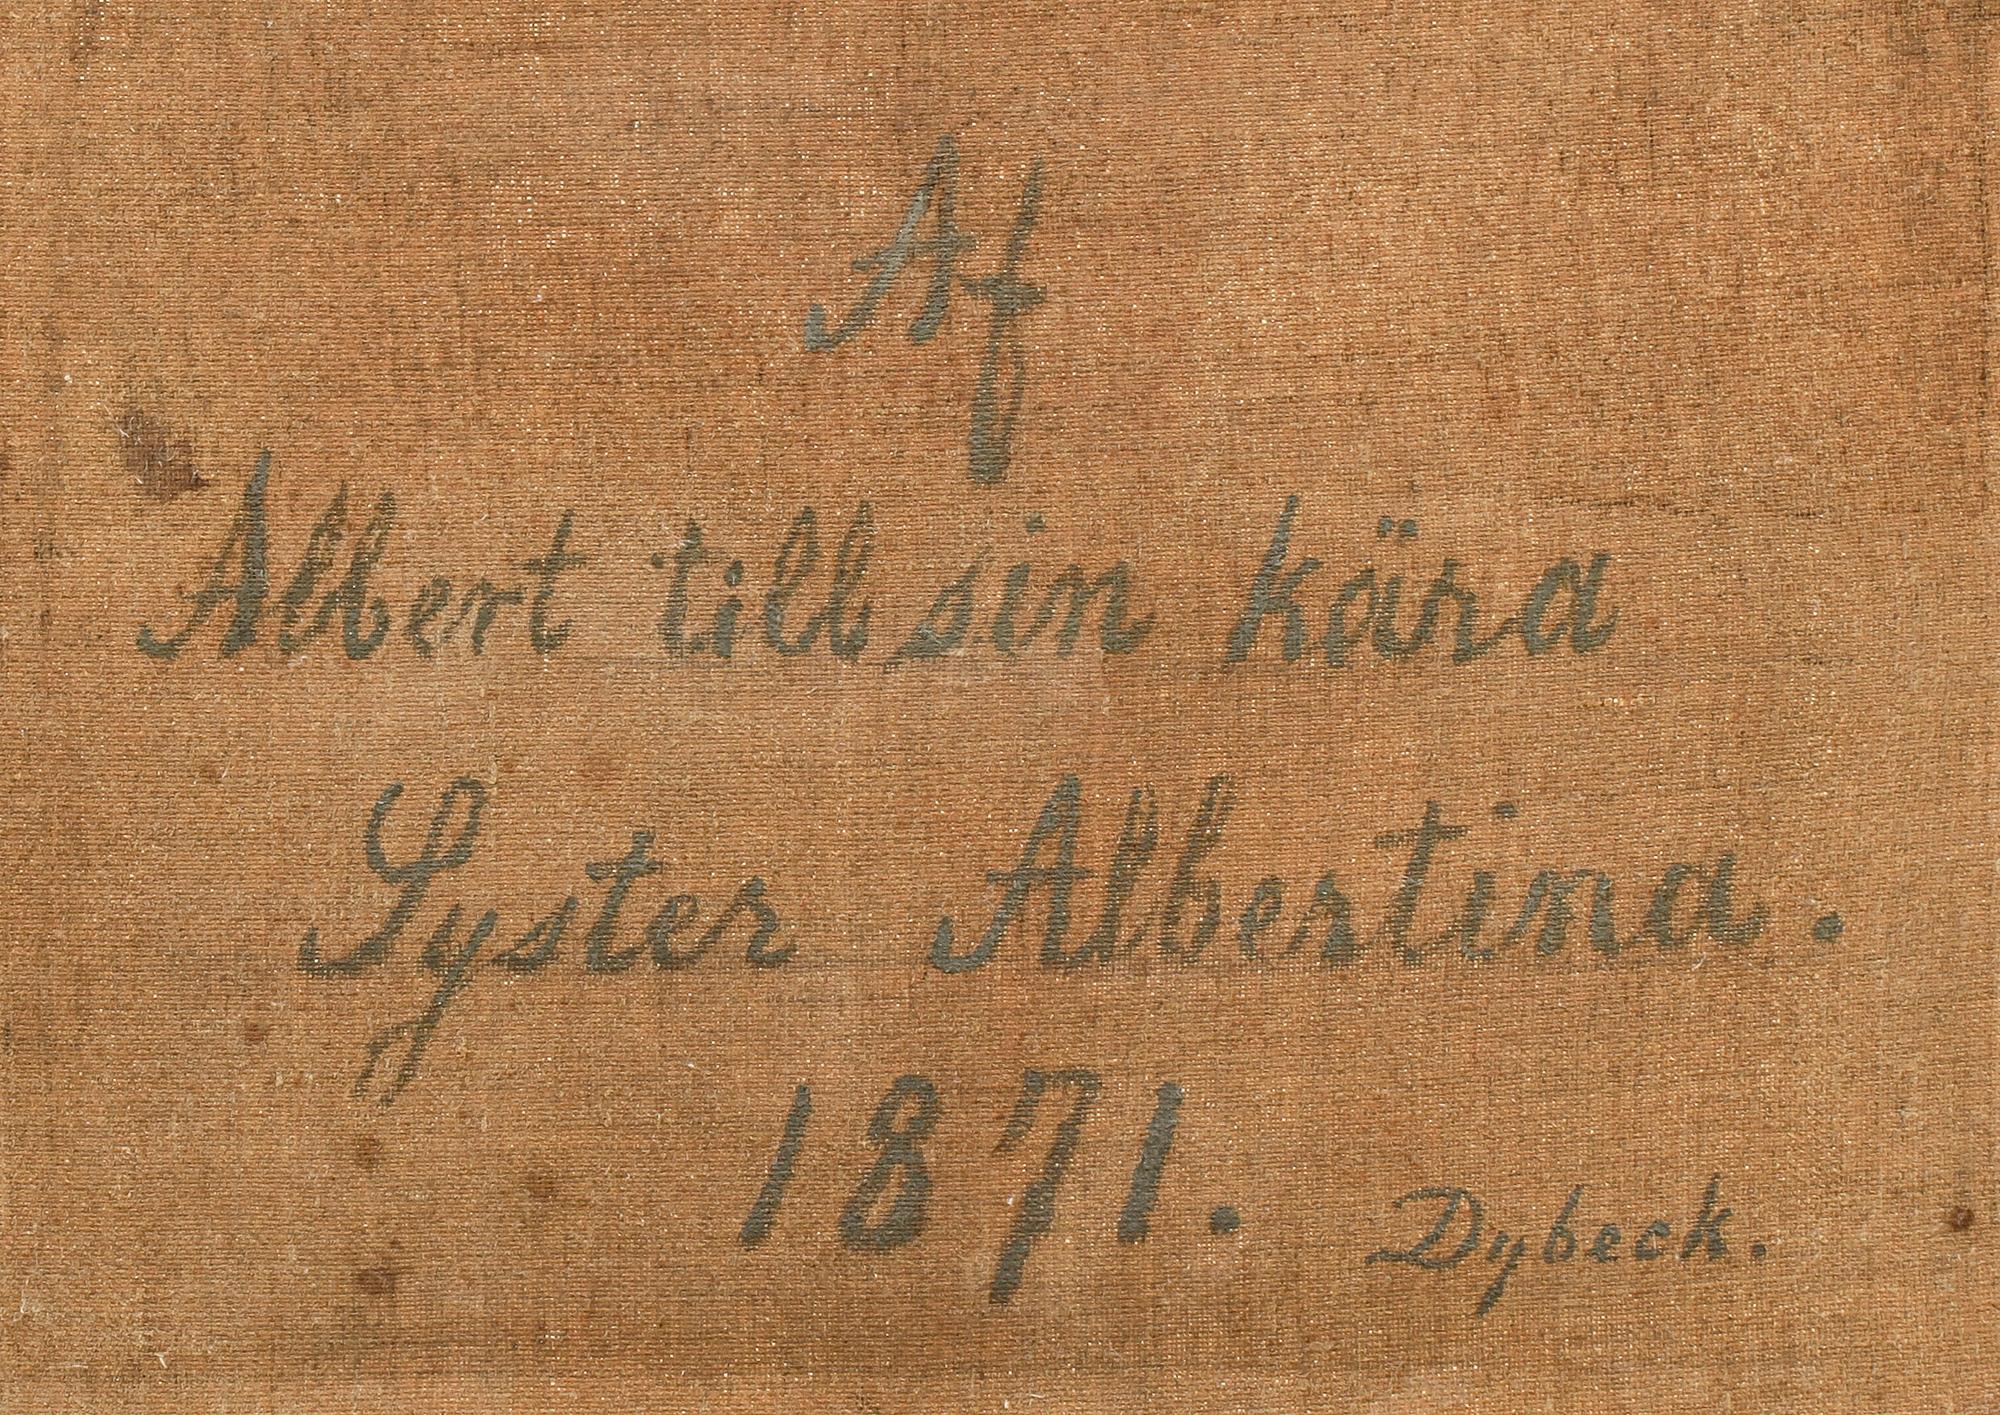 Af
Albert till sin kära
Syster Albertina.
1871. Dybeck.